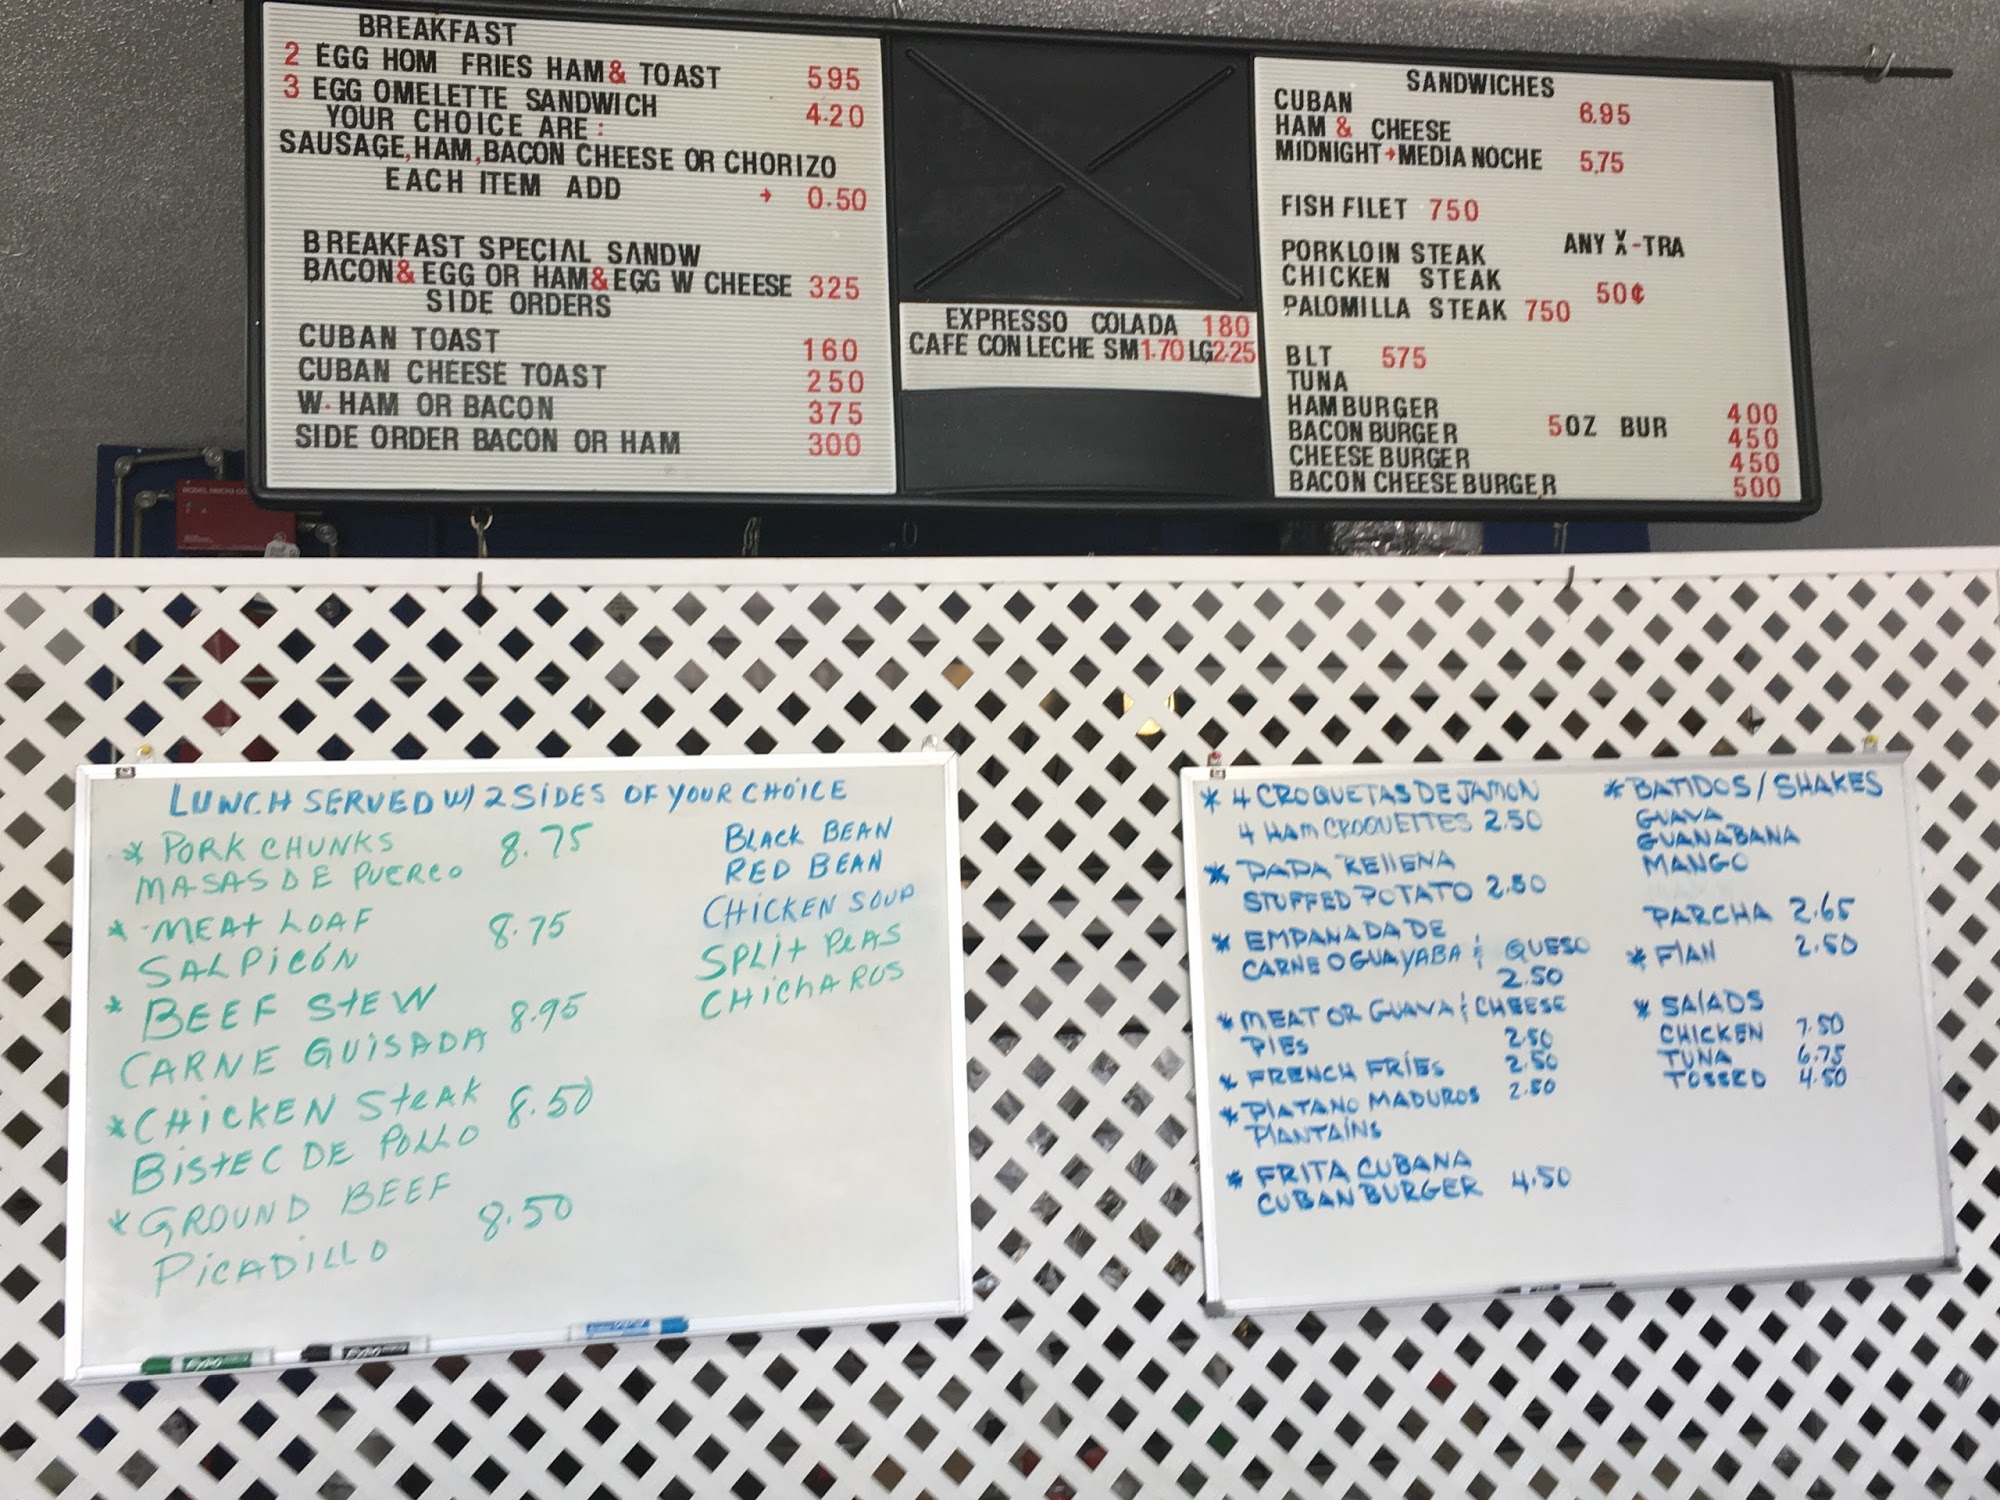 BREAKFAST
2 EGG HOM FRIES HAM& TOAST 595
3 EGG OMELETTE SANDWICH 4.20
YOUR CHOICE ARE:
SAUSAGE,HAM,BACON CHEESE OR CHORIZO
EACH ITEM ADD → 0.50
BREAKFAST SPECIAL SANDW
BACON& EGG OR HAM&EGG W CHEESE 325
SIDE ORDERS
CUBAN TOAST 160
CUBAN CHEESE TOAST 250
W. HAM OR BACON 375
SIDE ORDER BACON OR HAM 300
EXPRESSO COLADA 180
CAFE CON LECHE SM1.70 LG2.25
SANDWICHES
CUBAN 6.95
HAM & CHEESE
MIDNIGHT→MEDIA NOCHE 5.75
FISH FILET 750
PORKLOIN STEAK ANY X-TRA
CHICKEN STEAK 50¢
PALOMILLA STEAK 750
BLT 575
TUNA
HAMBURGER 400
BACON BURGER 5OZ BUR 450
CHEESE BURGER 450
BACON CHEESE BURGER 500
LUNCH SERVED W/ 2 SIDES OF YOUR CHOICE
* PORK CHUNKS 8.75
MASAS DE PUERCO
* MEAT LOAF 8.75
SALPICÓN
* BEEF STEW 8.95
CARNE GUISADA
* CHICKEN STEAK 8.50
BISTEC DE POLLO
* GROUND BEEF 8.50
PICADILLO
BLACK BEAN
RED BEAN
CHICKEN SOUP
SPLIT PEAS
CHICHAROS
* 4 CROQUETAS DE JAMON
4 HAM CROQUETTES 2.50
* PAPA RELLENA
STUFFED POTATO 2.50
* EMPANADA DE
CARNE O GUAYABA & QUESO
2.50
* MEAT OR GUAVA & CHEESE
PIES 2.50
* FRENCH FRIES 2.50
* PLATANO MADUROS 2.50
PLANTAINS
* FRITA CUBANA
CUBAN BURGER 4.50
* BATIDOS/SHAKES
GUAVA
GUANABANA
MANGO
PARCHA 2.65
* FLAN 2.50
* SALADS
CHICKEN 7.50
TUNA 6.75
TOSSED 4.50
EXPO
EXPO